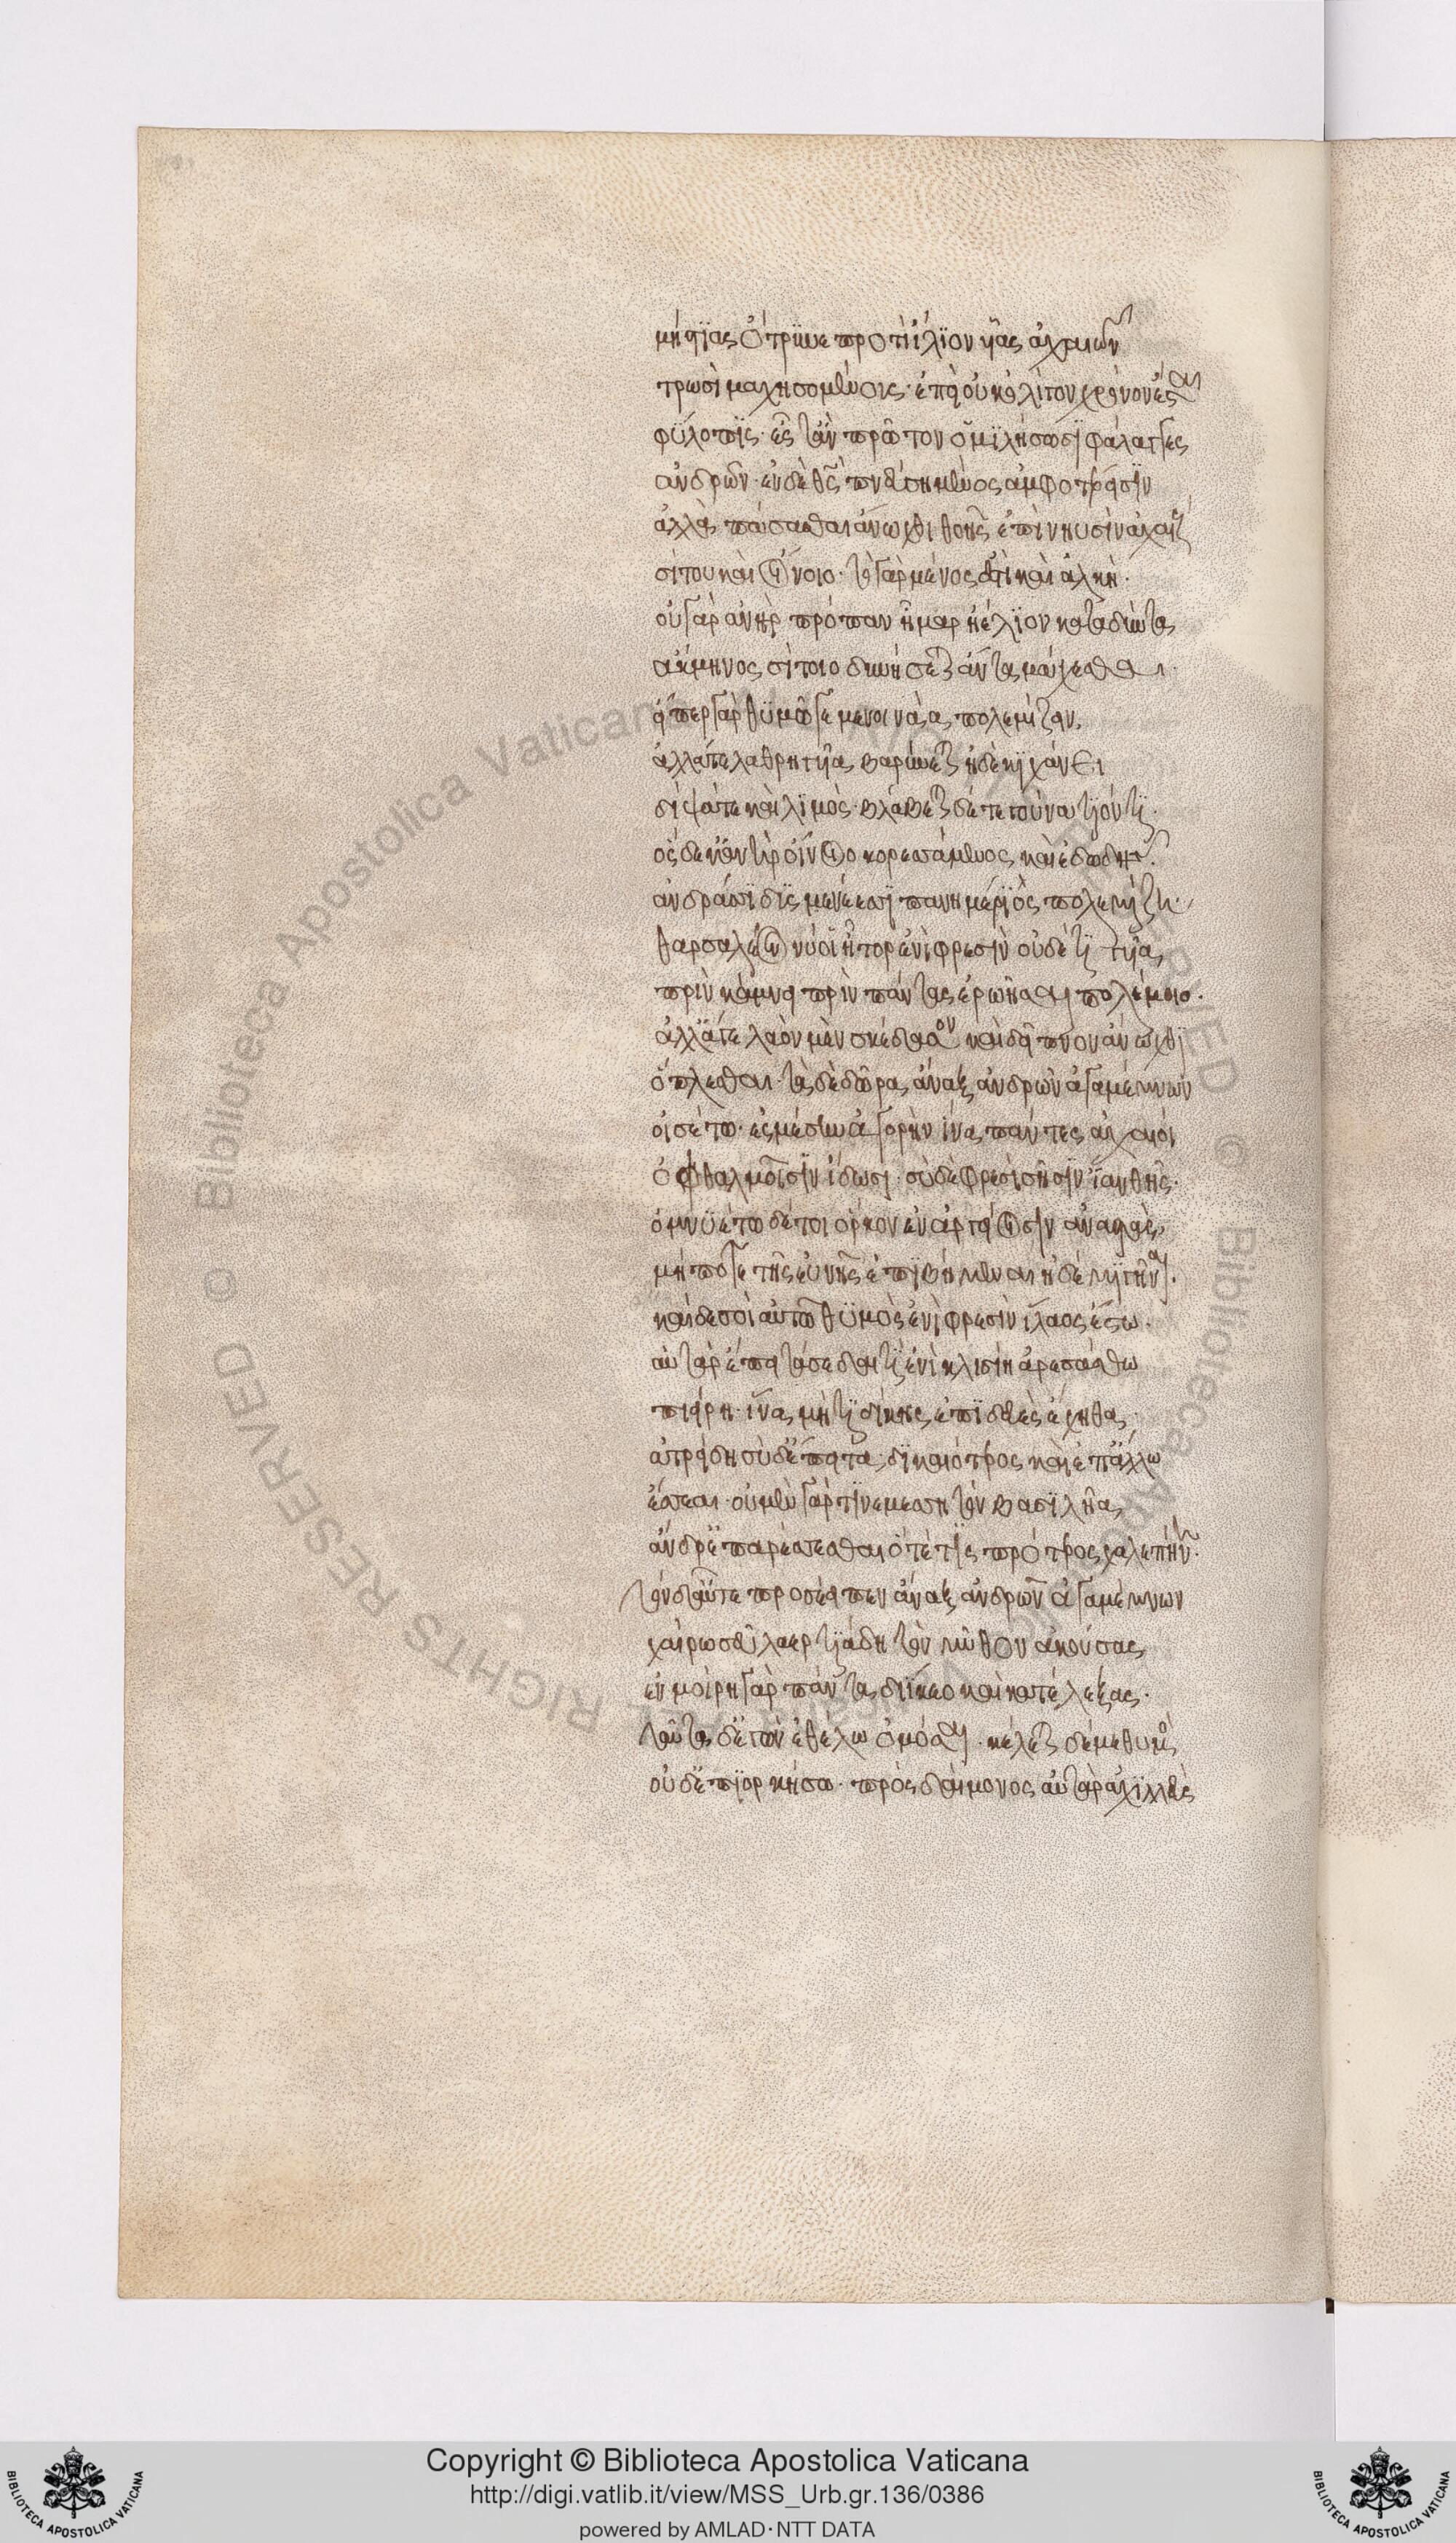 μήστιας ὄτρυνε προτὶ ἴλϊον υἷας ἀχαιῶν
τρωσὶ μαχησομένους· ἐπεὶ οὐκ ὀλίγον χρόνον ἔσται
φϋλοπϊς· εὖτ' ἂν πρῶτον ὁμϊλήσωσϊ φάλαγγες
ἀνδρῶν· ἐν δὲ θεὸς πνεύσῃ μένος ἀμφοτέροισϊν
ἀλλὰ πάσασθαι ἄνωχθι θοῆς ἐπὶ νηυσὶν ἀχαιοὺς
σίτου καὶ οἴνοιο· τὸ γὰρ μένος ἐστὶ καὶ ἀλκή·
οὐ γὰρ ἀνὴρ πρόπαν ἦμαρ ἠέλϊον καταδύντα
ἄκμηνος σίτοιο δυνήσεται ἄντα μάχεσθαι·
εἴπερ γὰρ θϋμῷ γε μενοινάᾳ πολεμίζειν,
ἀλλά τε λάθρη γυῖα βαρύνεται ἠδὲ κϊχάνει
δίψά τε καὶ λϊμός· βλάβεται δέ τε γούνατ' ἰόντϊ·
ὃς δέ κ' ἀνὴρ οἴνοιο κορεσσάμενος καὶ ἐδωδῆς
ἀνδράσϊ δϋσμενέεσσϊ πανημέρϊος πολεμίζῃ·
θαρσαλέον νύ οἱ ἦτορ ἐνὶ φρεσὶν οὐδέ τϊ γυῖα
πρὶν κάμνει πρὶν πάντας ἐρωῆσαι πολέμοιο·
ἀλλ' ἄγε λαὸν μὲν σκέδασον καὶ δεῖπνον ἄνωχθϊ
ὅπλεσθαι· τὰ δὲ δῶρα ἄναξ ἀνδρῶν ἀγαμέμνων
οἰσέτω· ἐς μέσσην ἀγορὴν ἵνα πάντες ἀχαιοὶ
ὀφθαλμοῖσϊν ἴδωσι· σὺ δὲ φρεσὶ σῇσϊν ἰανθῇς·
ὀμνϋέτω δέ τοι ὅρκον ἐν ἀργείοισιν ἀναστάς,
μή ποτε τῆς εὐνῆς ἐπϊβήμεναι ἠδὲ μϊγῆναι·
καὶ δὲ σοὶ αὐτῷ θϋμὸς ἐνὶ φρεσὶν ἵλαος ἔστω·
αὐτὰρ ἔπειτά σε δαιτὶ ἐνὶ κλισίῃ ἀρεσάσθω
πιείρῃ· ἵνα μή τϊ δίκης ἐπϊδευὲς ἔχησθα·
ἀτρείδη σὺ δ' ἔπειτα, δϊκαιότερος καὶ ἐπ' ἄλλῳ
ἔσσεαι· οὐ μὲν γάρ τϊ νεμεσσητὸν βασϊλῆα
ἄνδρ' ἀπαρέσσασθαι ὅτε τϊς πρότερος χαλεπήνῃ·
τὸν δ' αὖτε προσέειπεν ἄναξ ἀνδρῶν ἀγαμέμνων
χαίρω σεῦ λαερτϊάδη τὸν μῦθον ἀκούσας
ἐν μοίρῃ γὰρ πάντα διΐκεο καὶ κατέλεξας·
ταῦτα δ' ἐγὼν ἐθέλω ὀμόσαι· κέλεται δέ με θυμός
οὐδ' ἐπϊορκήσω· πρὸς δαίμονος αὐτὰρ ἀχϊλλεὺς
Copyright © Biblioteca Apostolica Vaticana
http://digi.vatlib.it/view/MSS_Urb.gr.136/0386
powered by AMLAD·NTT DATA